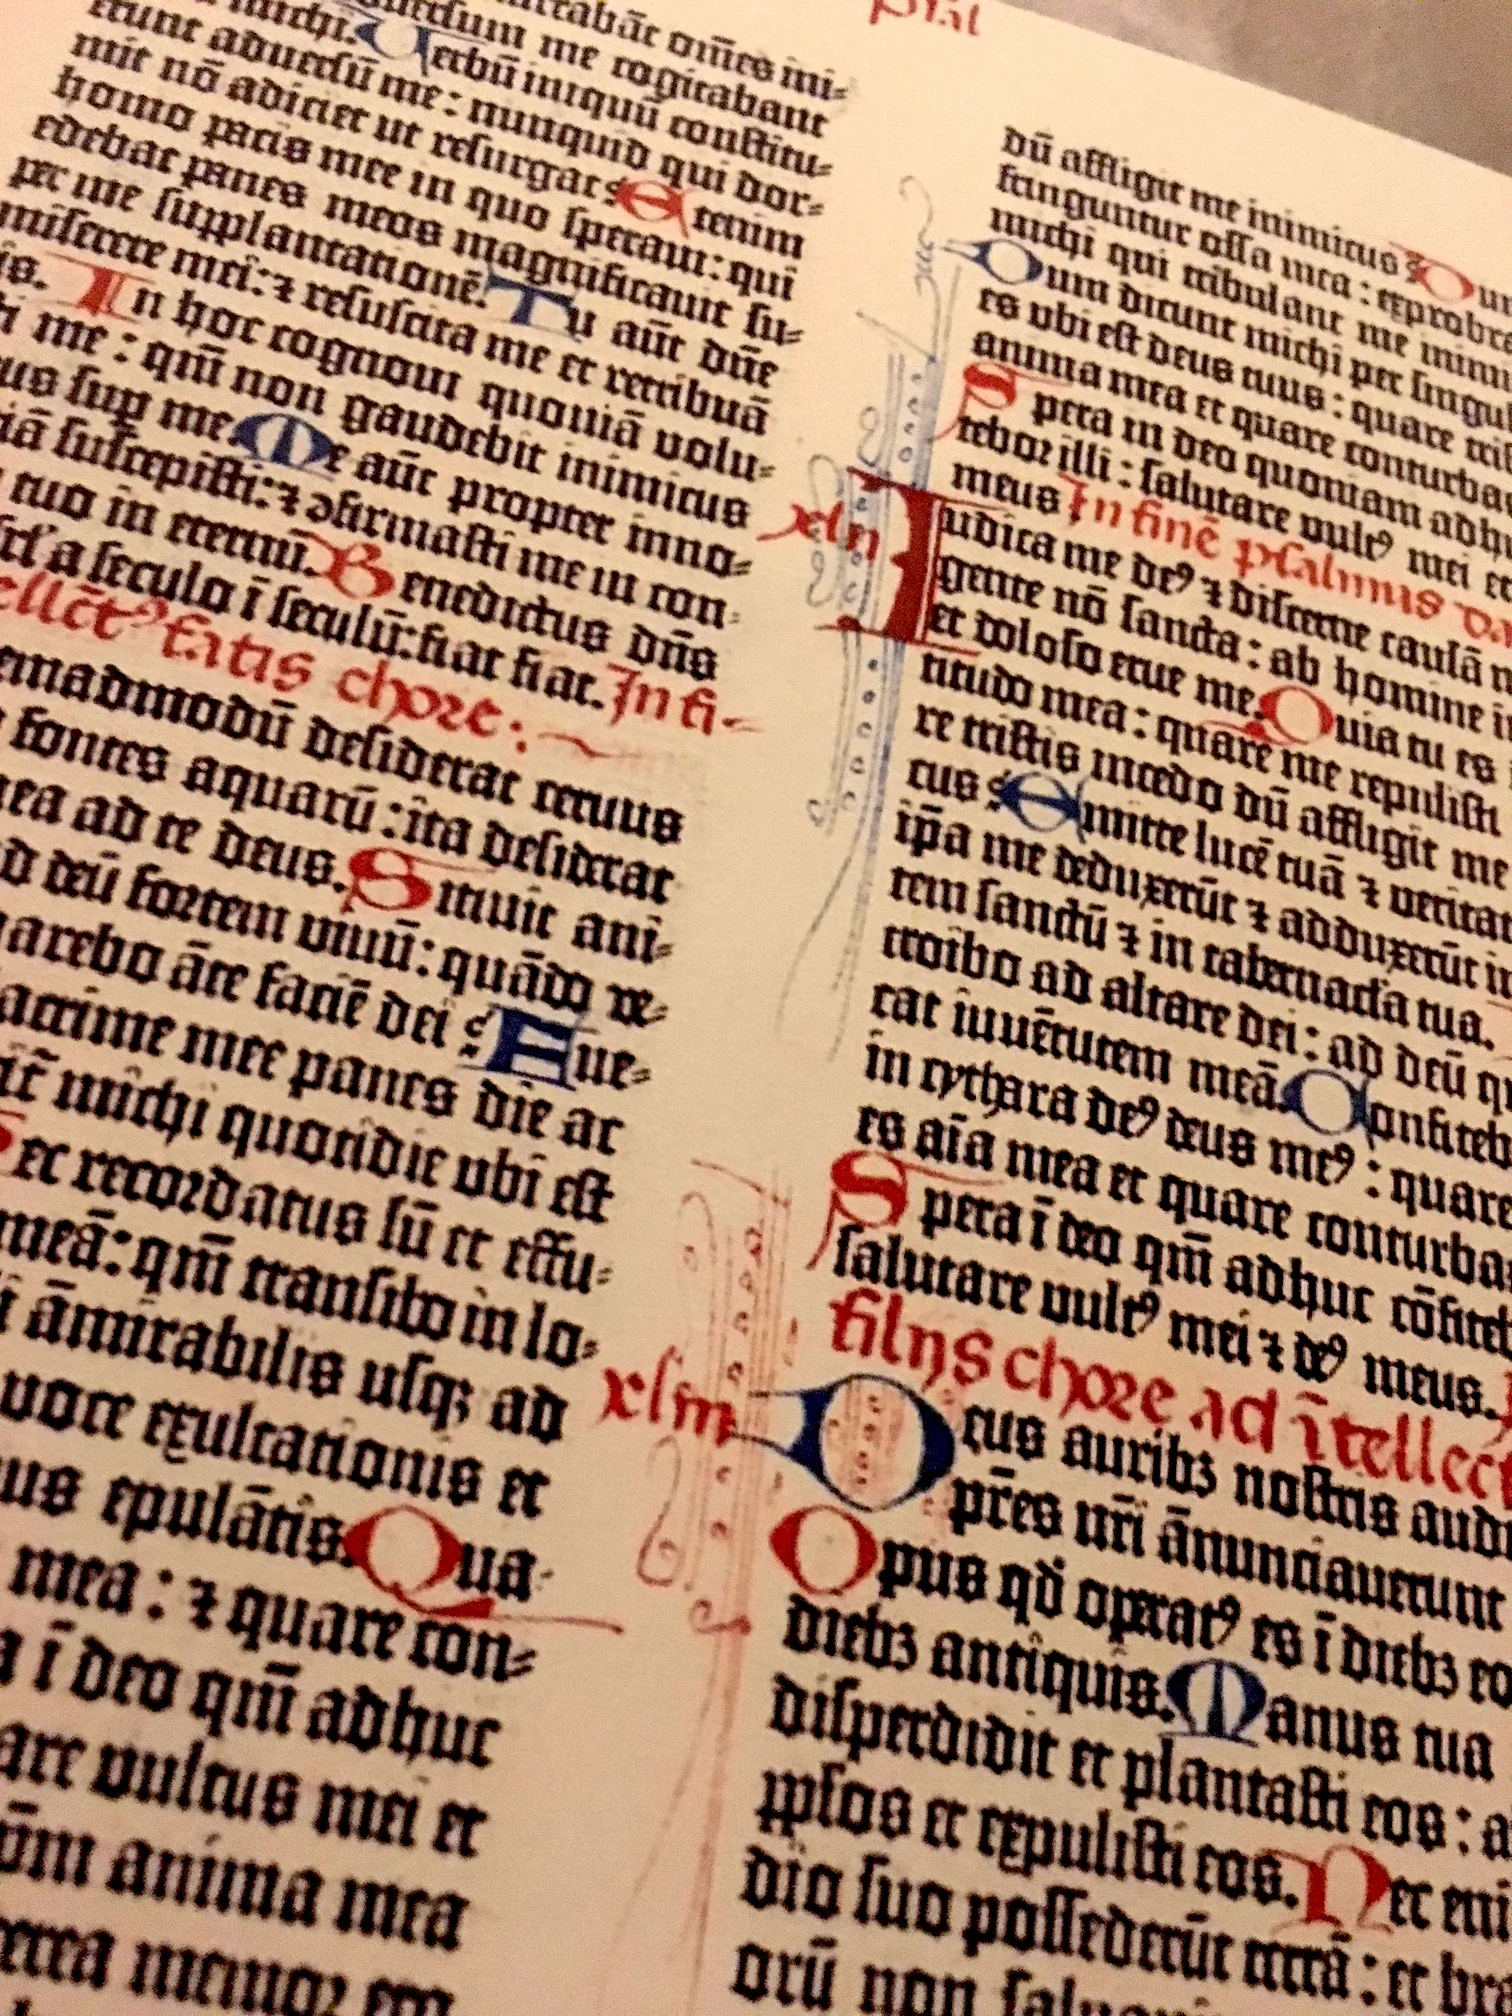 Psal
michi. aduersum me cogitabant
Verbū iniquū constitu-
erunt aduersū me: nunquid qui dor-
mit nō adiciet ut resurgat? Etenim
homo pacis mee in quo speraui: qui
edebat panes meos magnificauit su-
per me supplantationē. Tu aūt dn̄e
miserere mei: ⁊ resuscita me et retribuā
is. In hoc cognoui quoniā volu-
i me: qm̄ non gaudebit inimicus
us sup me. Me aūt propter inno-
iā suscepisti: ⁊ ꝯfirmasti me in con-
tuo in eternū. Benedictus dn̄s
isrl' a seculo ī seculū: fiat fiat. In fi-
ellct̄ꝰ filiis chore:
emadmodū desiderat ceruus
fontes aquarū: ita desiderat
mea ad te deus. Sitiuit ani-
d deū fortem viuū: quādo ve-
parebo āte faciē dei? Fue-
lacrime mee panes die ac
dicit̄ michi quotidie vbi est
Hec recordatus sū et effu-
meā: qm̄ transibo in lo-
i āmirabilis usqꝫ ad
voce exultationis et
us epulātis. Qua-
mea: ⁊ quare con-
a ī deo qm̄ adhuc
are vultus mei et
anima mea
terea memor ero
dū affligit me inimicus? Du
fringuntur ossa mea: exprobra
michi qui tribulant me inimi
Dum dicunt michi per singul
es vbi est deus tuus: quare tris
anima mea et quare conturba
Spera in deo quoniam adhu
tebor illi: salutare vultꝰ mei et
meus. In finē psalmus da
xlii Iudica me deꝰ ⁊ discerne causā m
gente nō sancta: ab homine i
et doloso erue me. Quia tu es
titudo mea: quare me repulisti
re tristis incedo dū affligit me
cus? Emitte lucē tuā ⁊ veritat
ip̄a me deduxerūt ⁊ adduxerūt i
tem sanctū ⁊ in tabernac'la tua.
troibo ad altare dei: ad deū qu
cat iuuētutem meā. Confiteb
in cythara deꝰ deus meꝰ: quare
es aīa mea et quare conturba
Spera ī deo qm̄ adhuc cōfiteb
salutare vultꝰ mei ⁊ deꝰ meus.
filiis chore ad ītellect
xliii Deus auribꝫ nostris audi
pr̄es nr̄i ānunciauerunt
Opus qd̄ operatꝰ es ī diebꝫ eo
diebꝫ antiquis. Manus tua
disperdidit et plantasti eos: a
pp̄los et expulisti eos. Nec eni
dio suo possederūt terrā: et bra
orū non saluauit